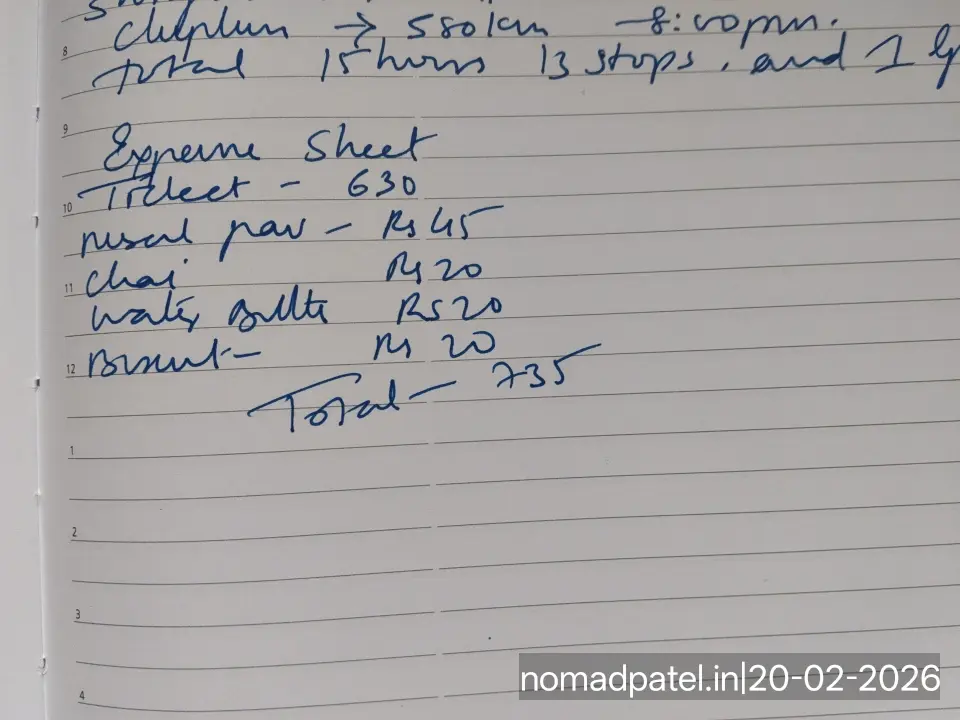 chiplun → 580 km - 8:00pm.
Total 15 hours 13 stops, and 1
8
9
Expense Sheet
10 Ticket - 630
misal pav - Rs 45
11 chai Rs 20
water Bottle Rs 20
12 Biscuit - Rs 20
Total - 735
1
2
3
4
nomadpatel.in|20-02-2026